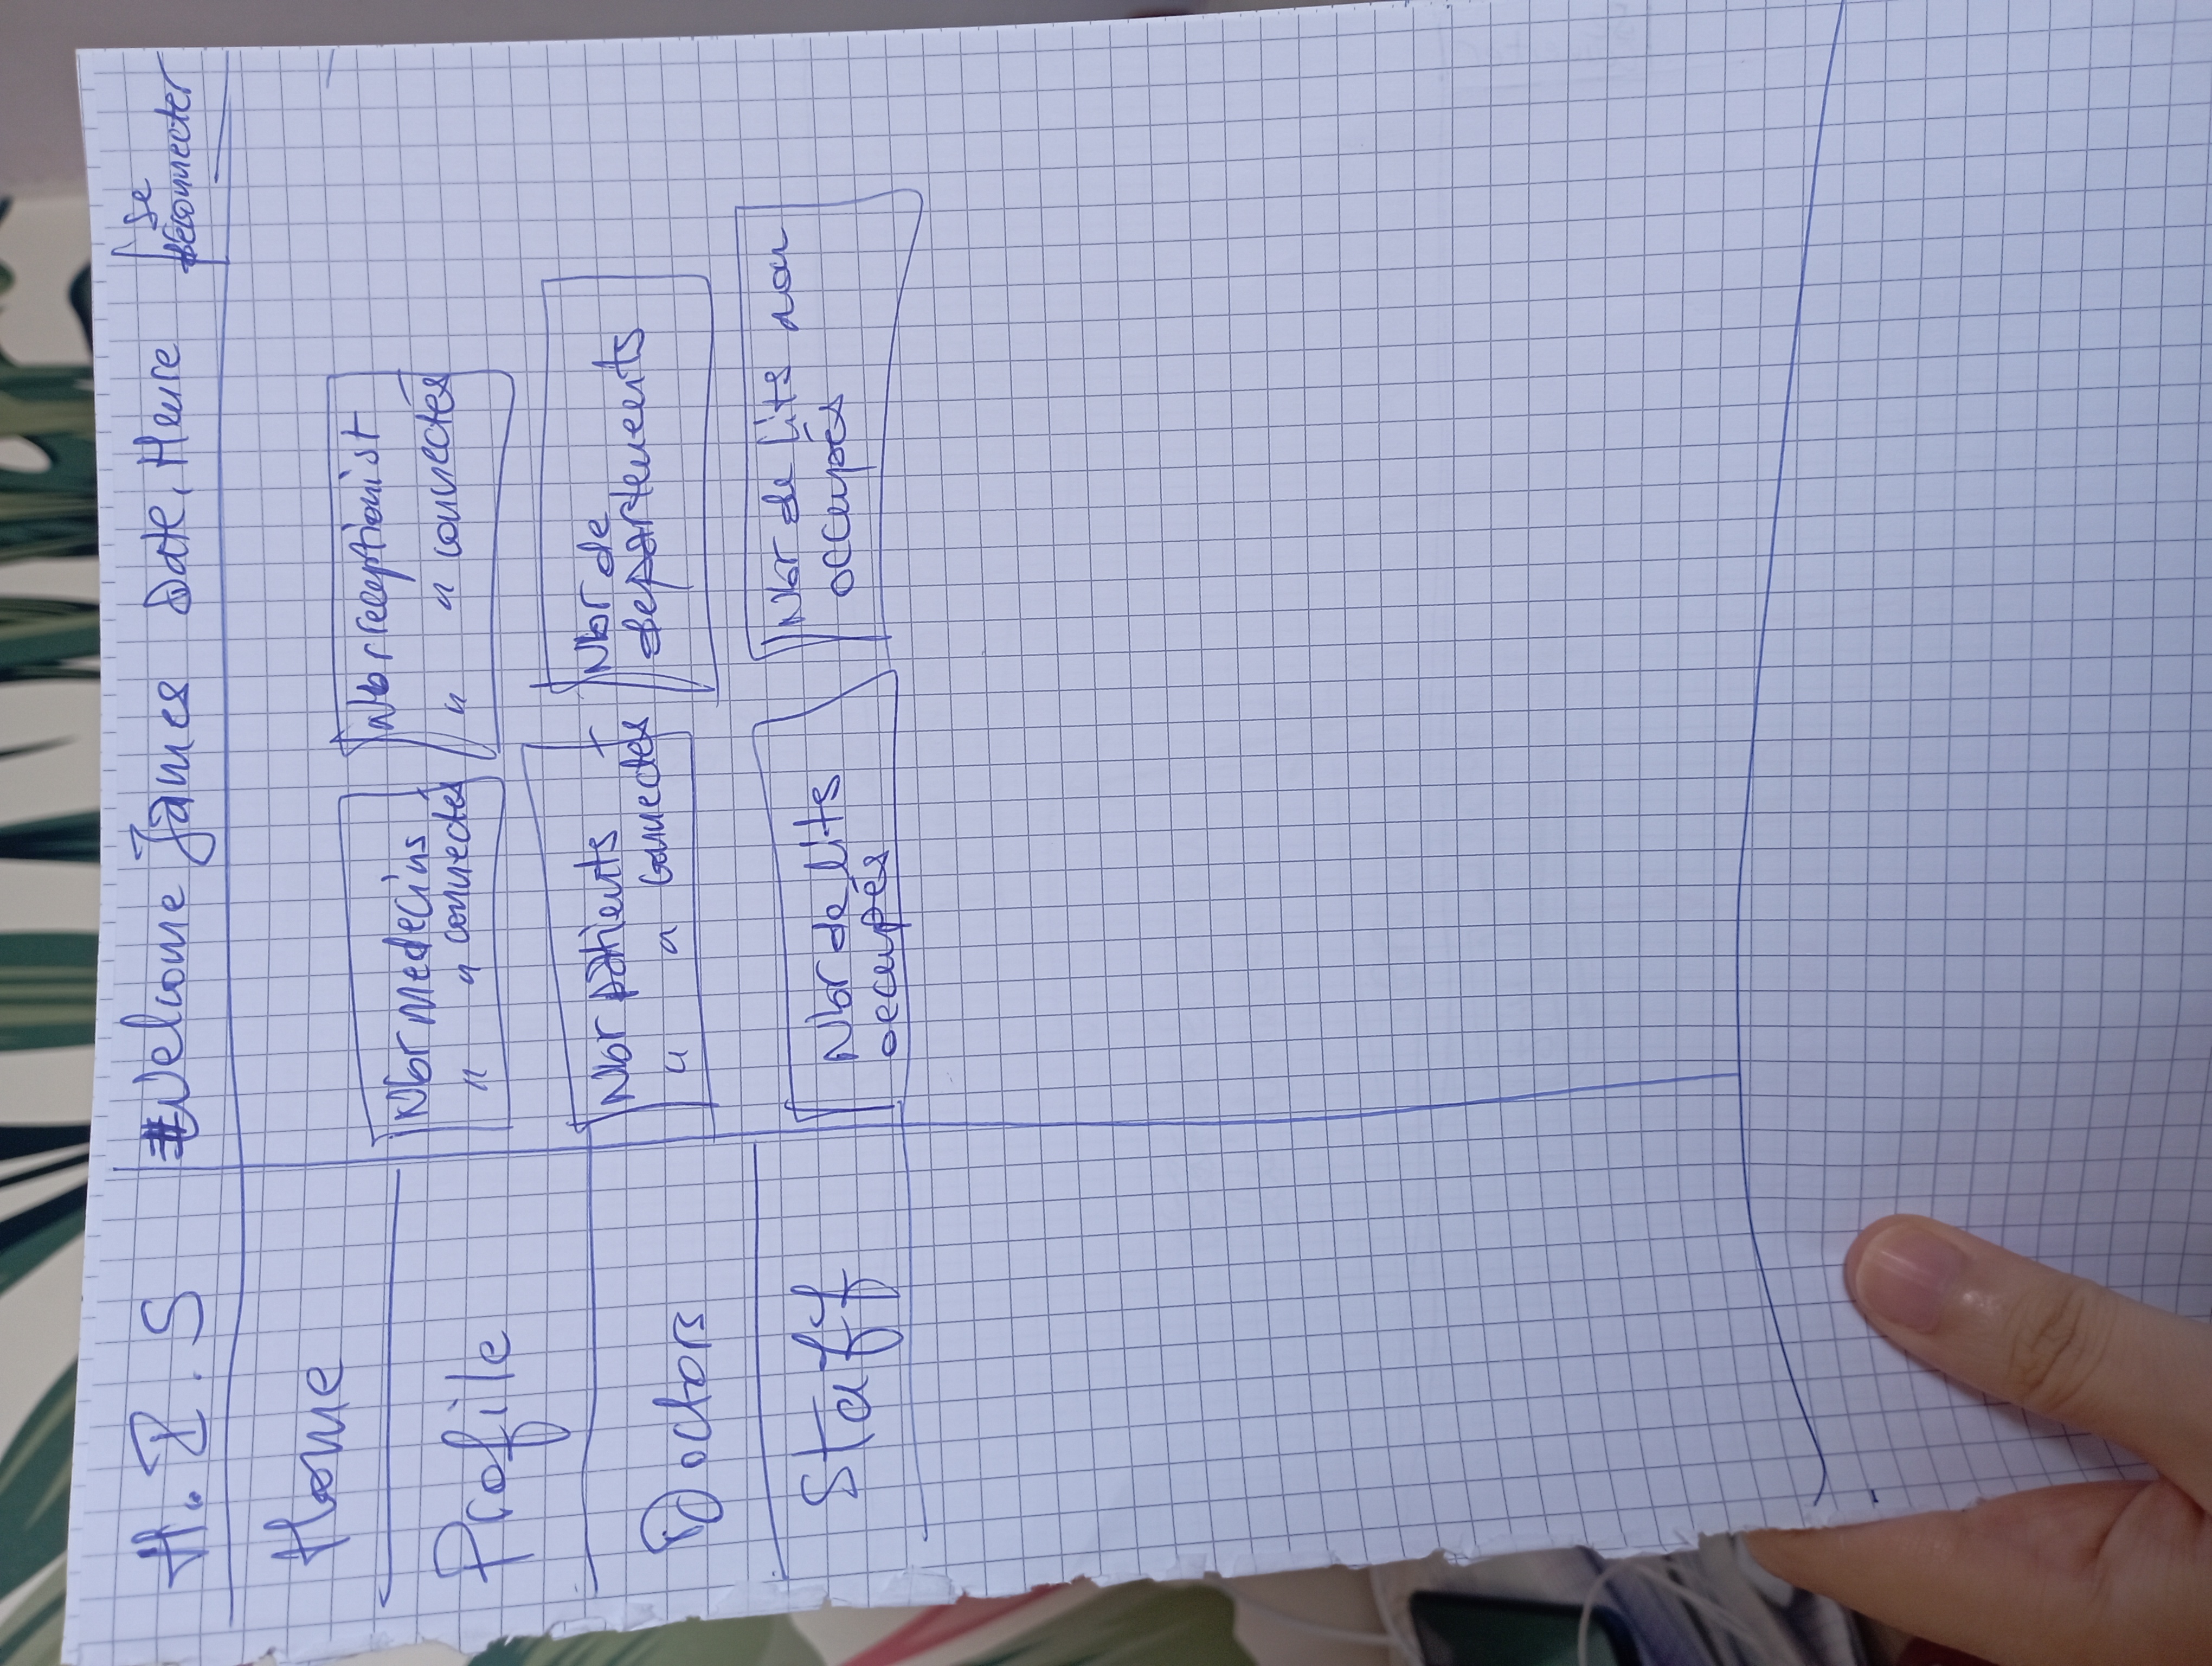 H. I. S
Welcome James Date, Heure
Se
déconnecter
Home
Profile
Doctors
Staff
Nbr medecins
" " connectés
Nbr receptionist
" " connectés
Nbr patients
" " connectés
Nbr de
departements
Nbr de lits
occupés
Nbr de lits non
occupés